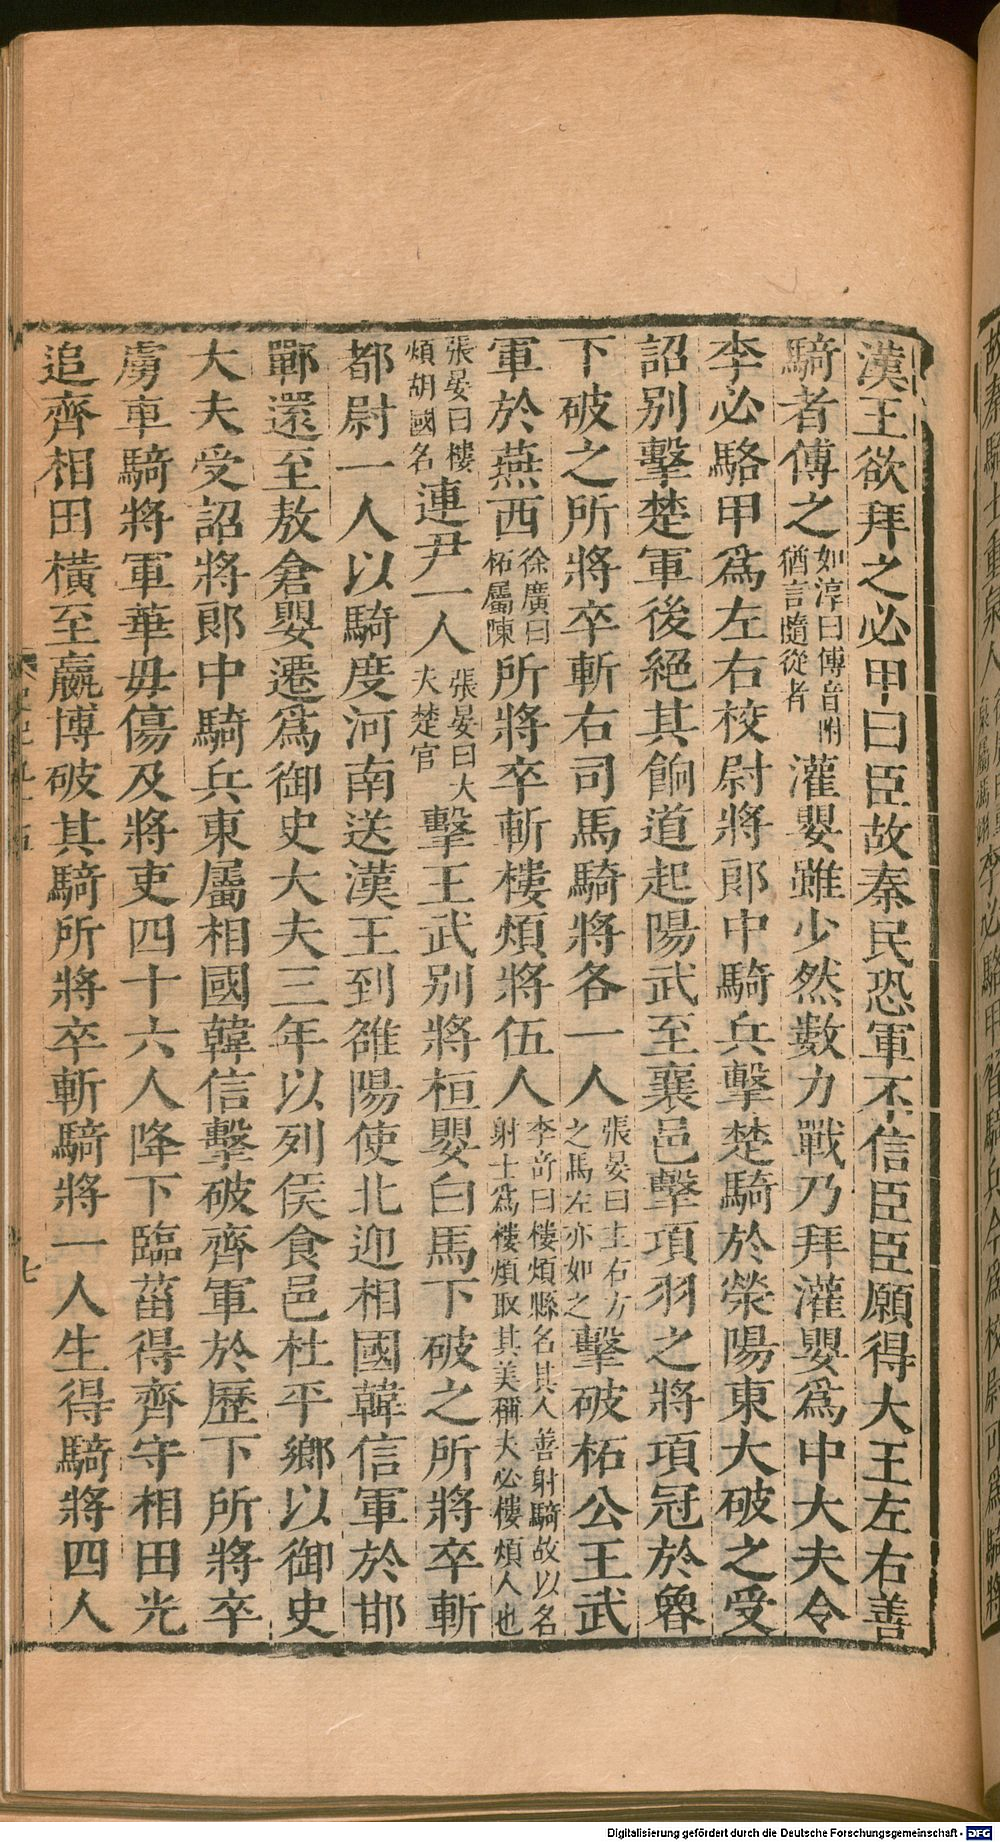 漢王欲拜之必甲曰臣故秦民恐軍不信臣臣願得大王左右善
騎者傅之如淳曰傅音附猶言隨從者灌嬰雖少然數力戰乃拜灌嬰爲中大夫令
李必駱甲爲左右校尉將郎中騎兵擊楚騎於滎陽東大破之受
詔别擊楚軍後絕其餉道起陽武至襄邑擊項羽之將項冠於魯
下破之所將卒斬右司馬騎將各一人張晏曰主右方之馬左亦如之擊破柘公王武
軍於燕西徐廣曰柘屬陳所將卒斬樓煩將伍人李竒曰樓煩縣名其人善射騎故以名射士爲樓煩取其美稱大必樓煩人也
張晏曰樓煩胡國名連尹一人張晏曰大夫楚官擊王武别將桓嬰白馬下破之所將卒斬
都尉一人以騎度河南送漢王到雒陽使北迎相國韓信軍於邯
鄲還至敖倉嬰遷爲御史大夫三年以列侯食邑杜平鄉以御史
大夫受詔將郎中騎兵東屬相國韓信擊破齊軍於歷下所將卒
虜車騎將軍華毋傷及將吏四十六人降下臨菑得齊守相田光
追齊相田橫至嬴博破其騎所將卒斬騎將一人生得騎將四人
七
Digitalisierung gefördert durch die Deutsche Forschungsgemeinschaft - DFG